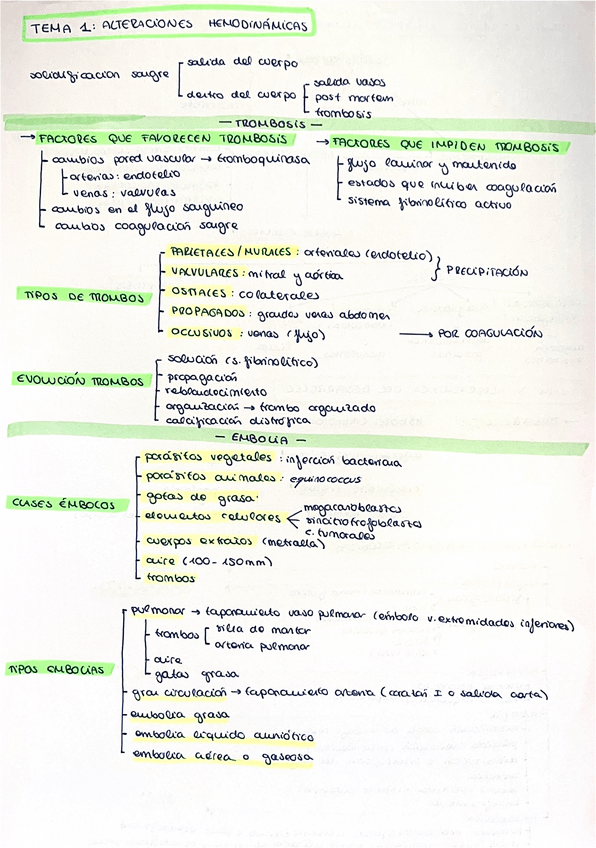 TEMA 1: ALTERACIONES HEMODINÁMICAS
salida del cuerpo
solidificación sangre
dentro del cuerpo
salida vasos
post mortem
trombosis
— TROMBOSIS —
→ FACTORES QUE FAVORECEN TROMBOSIS
→ FACTORES QUE IMPIDEN TROMBOSIS
cambios pared vascular → tromboquinasa
arterias: endotelio
venas: valvulas
cambios en el flujo sanguíneo
cambios coagulación sangre
flujo laminar y mantenido
estados que inhiben coagulación
sistema fibrinolítico activo
TIPOS DE TROMBOS
PARIETALES/MURALES: arteriales (endotelio)
VALVULARES: mitral y aórtica
} PRECIPITACIÓN
OSTIALES: colaterales
PROPAGADOS: grandes venas abdomen
OCLUSIVOS: venas (flujo) → POR COAGULACIÓN
EVOLUCIÓN TROMBOS
solución (s. fibrinolítico)
propagación
reblandecimiento
organización → trombo organizado
calcificación distrófica
— EMBOLIA —
CLASES ÉMBOLOS
parásitos vegetales: infección bacteriana
parásitos animales: equinococcus
gotas de grasa
elementos celulares
megacarioblastos
sincitiotrofoblastos
c. tumorales
cuerpos extraños (metralla)
aire (100-150mm)
trombos
TIPOS EMBOLIAS
pulmonar → taponamiento vaso pulmonar (émbolo v. extremidades inferiores)
trombos
silla de montar
arteria pulmonar
aire
gotas grasa
gran circulación → taponamiento arteria (corazón I o salida aorta)
embolia grasa
embolia líquido amniótico
embolia aérea o gaseosa